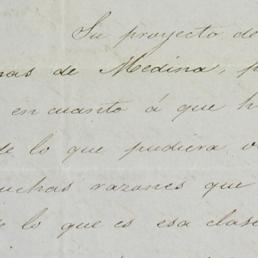 Su proyecto de
nas de Medina, p
en cuanto á que h
de lo que pudiera o
uchas razones que
de lo que es esa clase